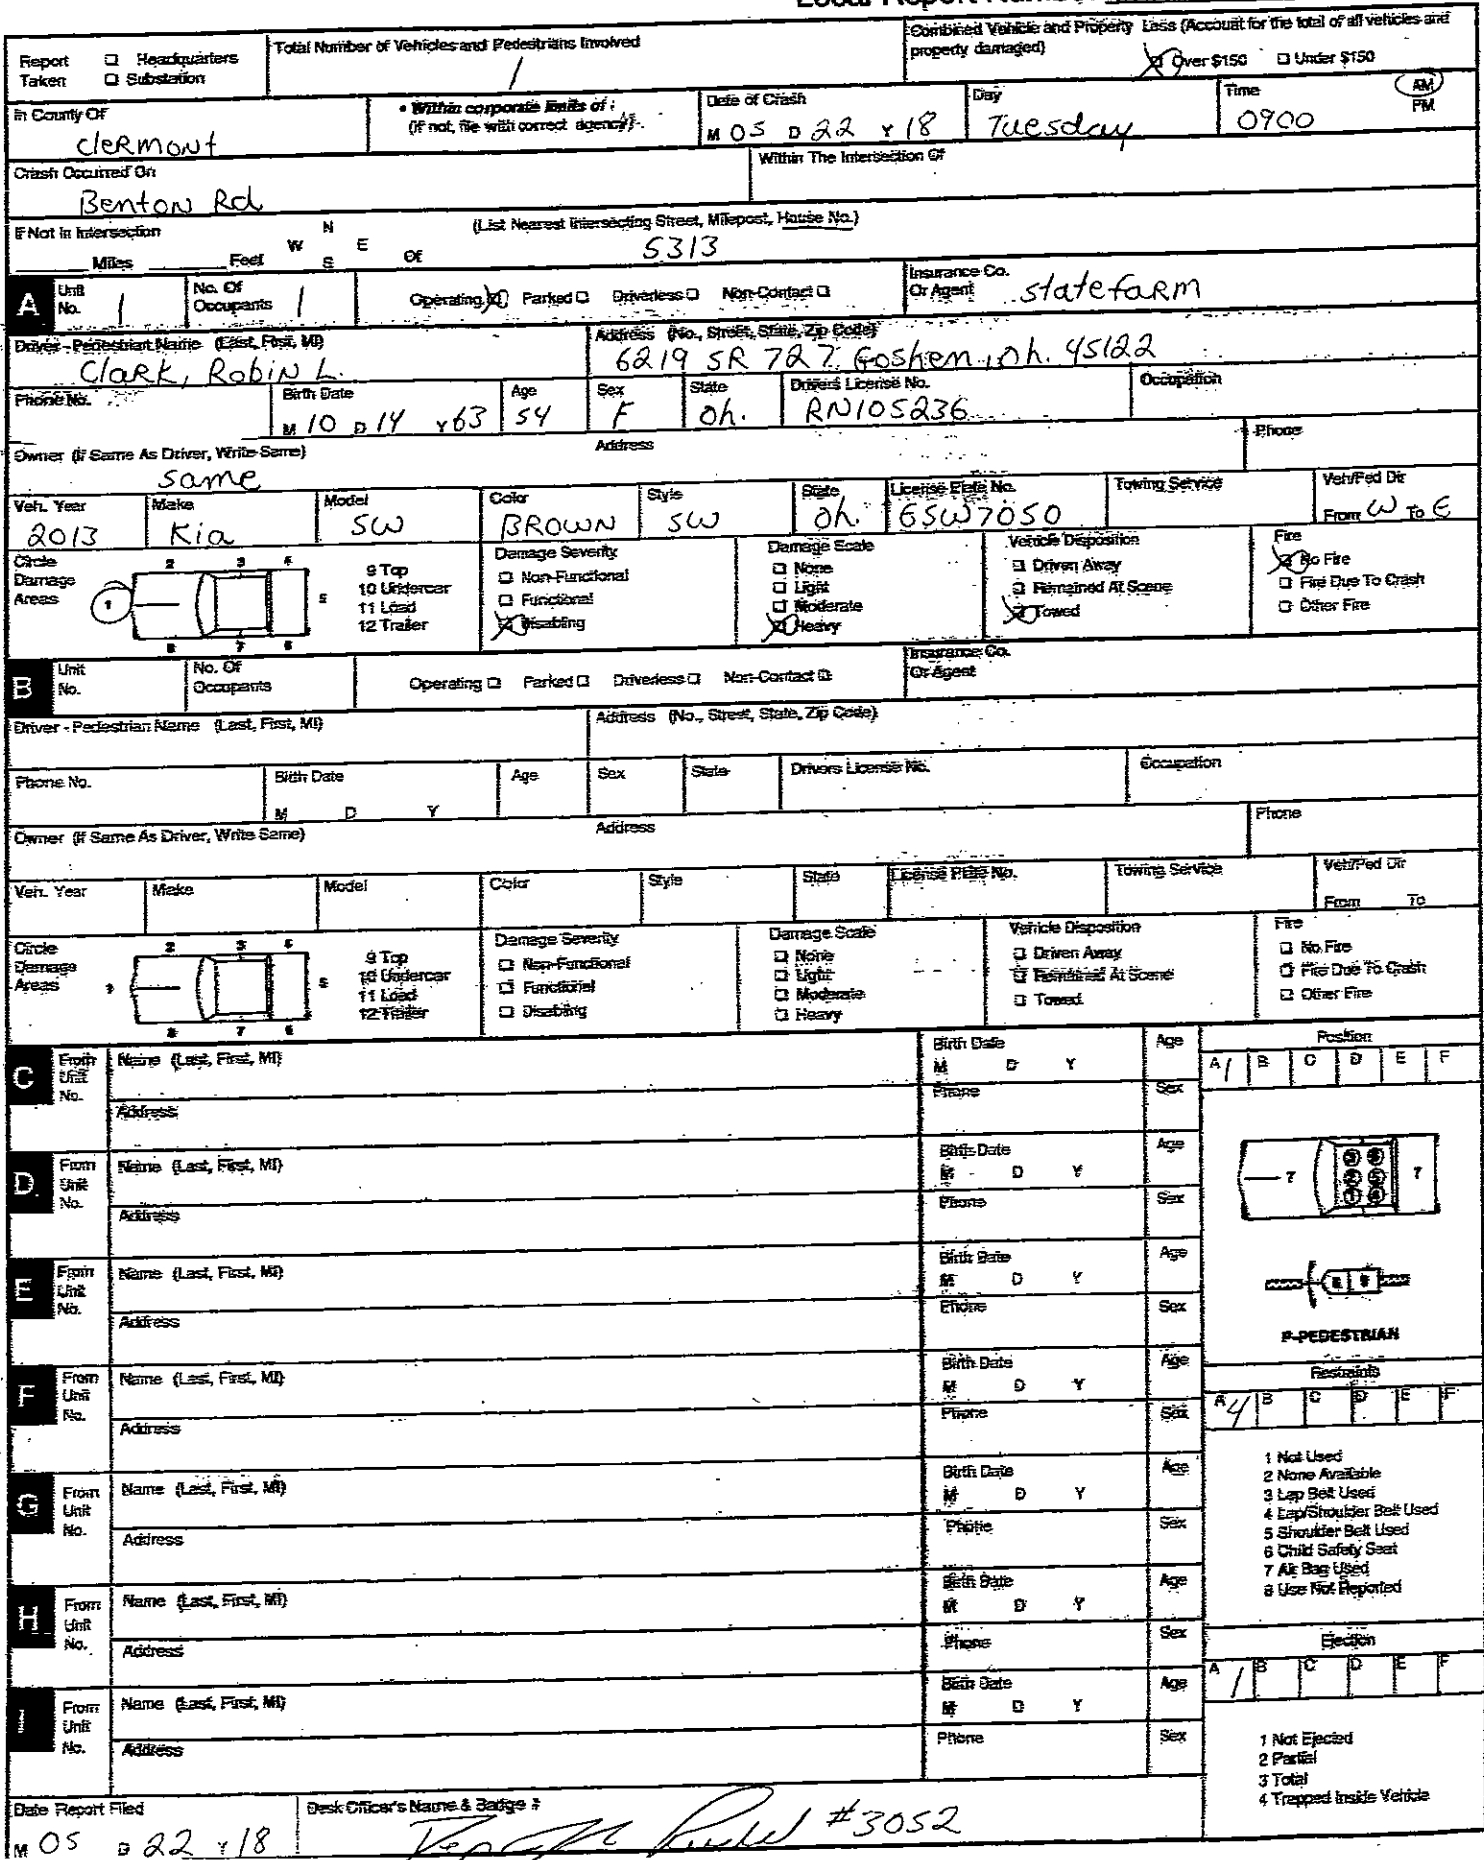 Local Report Number
Report Taken ☐ Headquarters ☐ Substation
Total Number of Vehicles and Pedestrians Involved
1
Combined Vehicle and Property Loss (Account for the total of all vehicles and property damaged)
☒ Over $150 ☐ Under $150
In County Of
CleRmont
• Within corporate limits of :
(If not, file with correct agency).
Date of Crash
M 05 D 22 Y 18
Day
Tuesday
Time
0900
AM
PM
Crash Occurred On
Benton Rd
Within The Intersection Of
If Not in Intersection
Miles Feet N W E S Of
(List Nearest Intersecting Street, Milepost, House No.)
5313
A Unit No. 1
No. Of Occupants 1
Operating ☒ Parked ☐ Driverless ☐ Non-Contact ☐
Insurance Co. Or Agent
statefaRm
Driver - Pedestrian Name (Last, First, MI)
ClaRk, Robin L.
Address (No., Street, State, Zip Code)
6219 SR 727 Goshen, Oh. 45122
Phone No.
Birth Date
M 10 D 14 Y 63
Age
54
Sex
F
State
Oh.
Drivers License No.
RN105236
Occupation
Owner (If Same As Driver, Write Same)
same
Address
Phone
Veh. Year
2013
Make
Kia
Model
SW
Color
BROWN
Style
SW
State
Oh.
License Plate No.
GSW7050
Towing Service
Veh/Ped Dir
From W To E
Circle Damage Areas
1 2 3 4 5 6 7 8
9 Top
10 Undercar
11 Load
12 Trailer
Damage Severity
☐ Non-Functional
☐ Functional
☒ Disabling
Damage Scale
☐ None
☐ Light
☐ Moderate
☒ Heavy
Vehicle Disposition
☐ Driven Away
☐ Remained At Scene
☒ Towed
Fire
☒ No Fire
☐ Fire Due To Crash
☐ Other Fire
B Unit No.
No. Of Occupants
Operating ☐ Parked ☐ Driverless ☐ Non-Contact ☐
Insurance Co. Or Agent
Driver - Pedestrian Name (Last, First, MI)
Address (No., Street, State, Zip Code)
Phone No.
Birth Date
M D Y
Age
Sex
State
Drivers License No.
Occupation
Owner (If Same As Driver, Write Same)
Address
Phone
Veh. Year
Make
Model
Color
Style
State
License Plate No.
Towing Service
Veh/Ped Dir
From To
Circle Damage Areas
9 Top
10 Undercar
11 Load
12 Trailer
Damage Severity
☐ Non-Functional
☐ Functional
☐ Disabling
Damage Scale
☐ None
☐ Light
☐ Moderate
☐ Heavy
Vehicle Disposition
☐ Driven Away
☐ Remained At Scene
☐ Towed
Fire
☐ No Fire
☐ Fire Due To Crash
☐ Other Fire
C From Unit No.
Name (Last, First, MI)
Birth Date
M D Y
Age
Address
Phone
Sex
Position
A 1 B C D E F
D From Unit No.
Name (Last, First, MI)
Birth Date
M D Y
Age
Address
Phone
Sex
7 7
E From Unit No.
Name (Last, First, MI)
Birth Date
M D Y
Age
Address
Phone
Sex
P-PEDESTRIAN
F From Unit No.
Name (Last, First, MI)
Birth Date
M D Y
Age
Address
Phone
Sex
Restraints
A 4 B C D E F
G From Unit No.
Name (Last, First, MI)
Birth Date
M D Y
Age
Address
Phone
Sex
1 Not Used
2 None Available
3 Lap Belt Used
4 Lap/Shoulder Belt Used
5 Shoulder Belt Used
6 Child Safety Seat
7 Air Bag Used
8 Use Not Reported
H From Unit No.
Name (Last, First, MI)
Birth Date
M D Y
Age
Address
Phone
Sex
Ejection
A 1 B C D E F
I From Unit No.
Name (Last, First, MI)
Birth Date
M D Y
Age
Address
Phone
Sex
1 Not Ejected
2 Partial
3 Total
4 Trapped Inside Vehicle
Date Report Filed
M 05 D 22 Y 18
Desk Officer's Name & Badge #
#3052